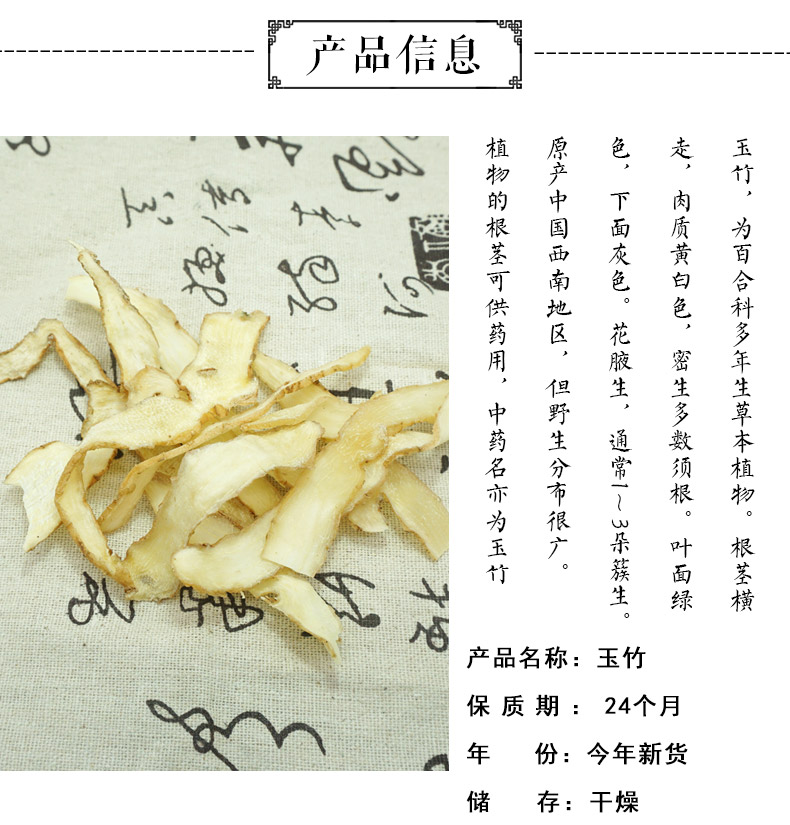 产品信息
玉竹，为百合科多年生草本植物。根茎横
走，肉质黄白色，密生多数须根。叶面绿
色，下面灰色。花腋生，通常1~3朵簇生。
原产中国西南地区，但野生分布很广。
植物的根茎可供药用，中药名亦为玉竹
产品名称：玉竹
保质期：24个月
年 份：今年新货
储 存：干燥